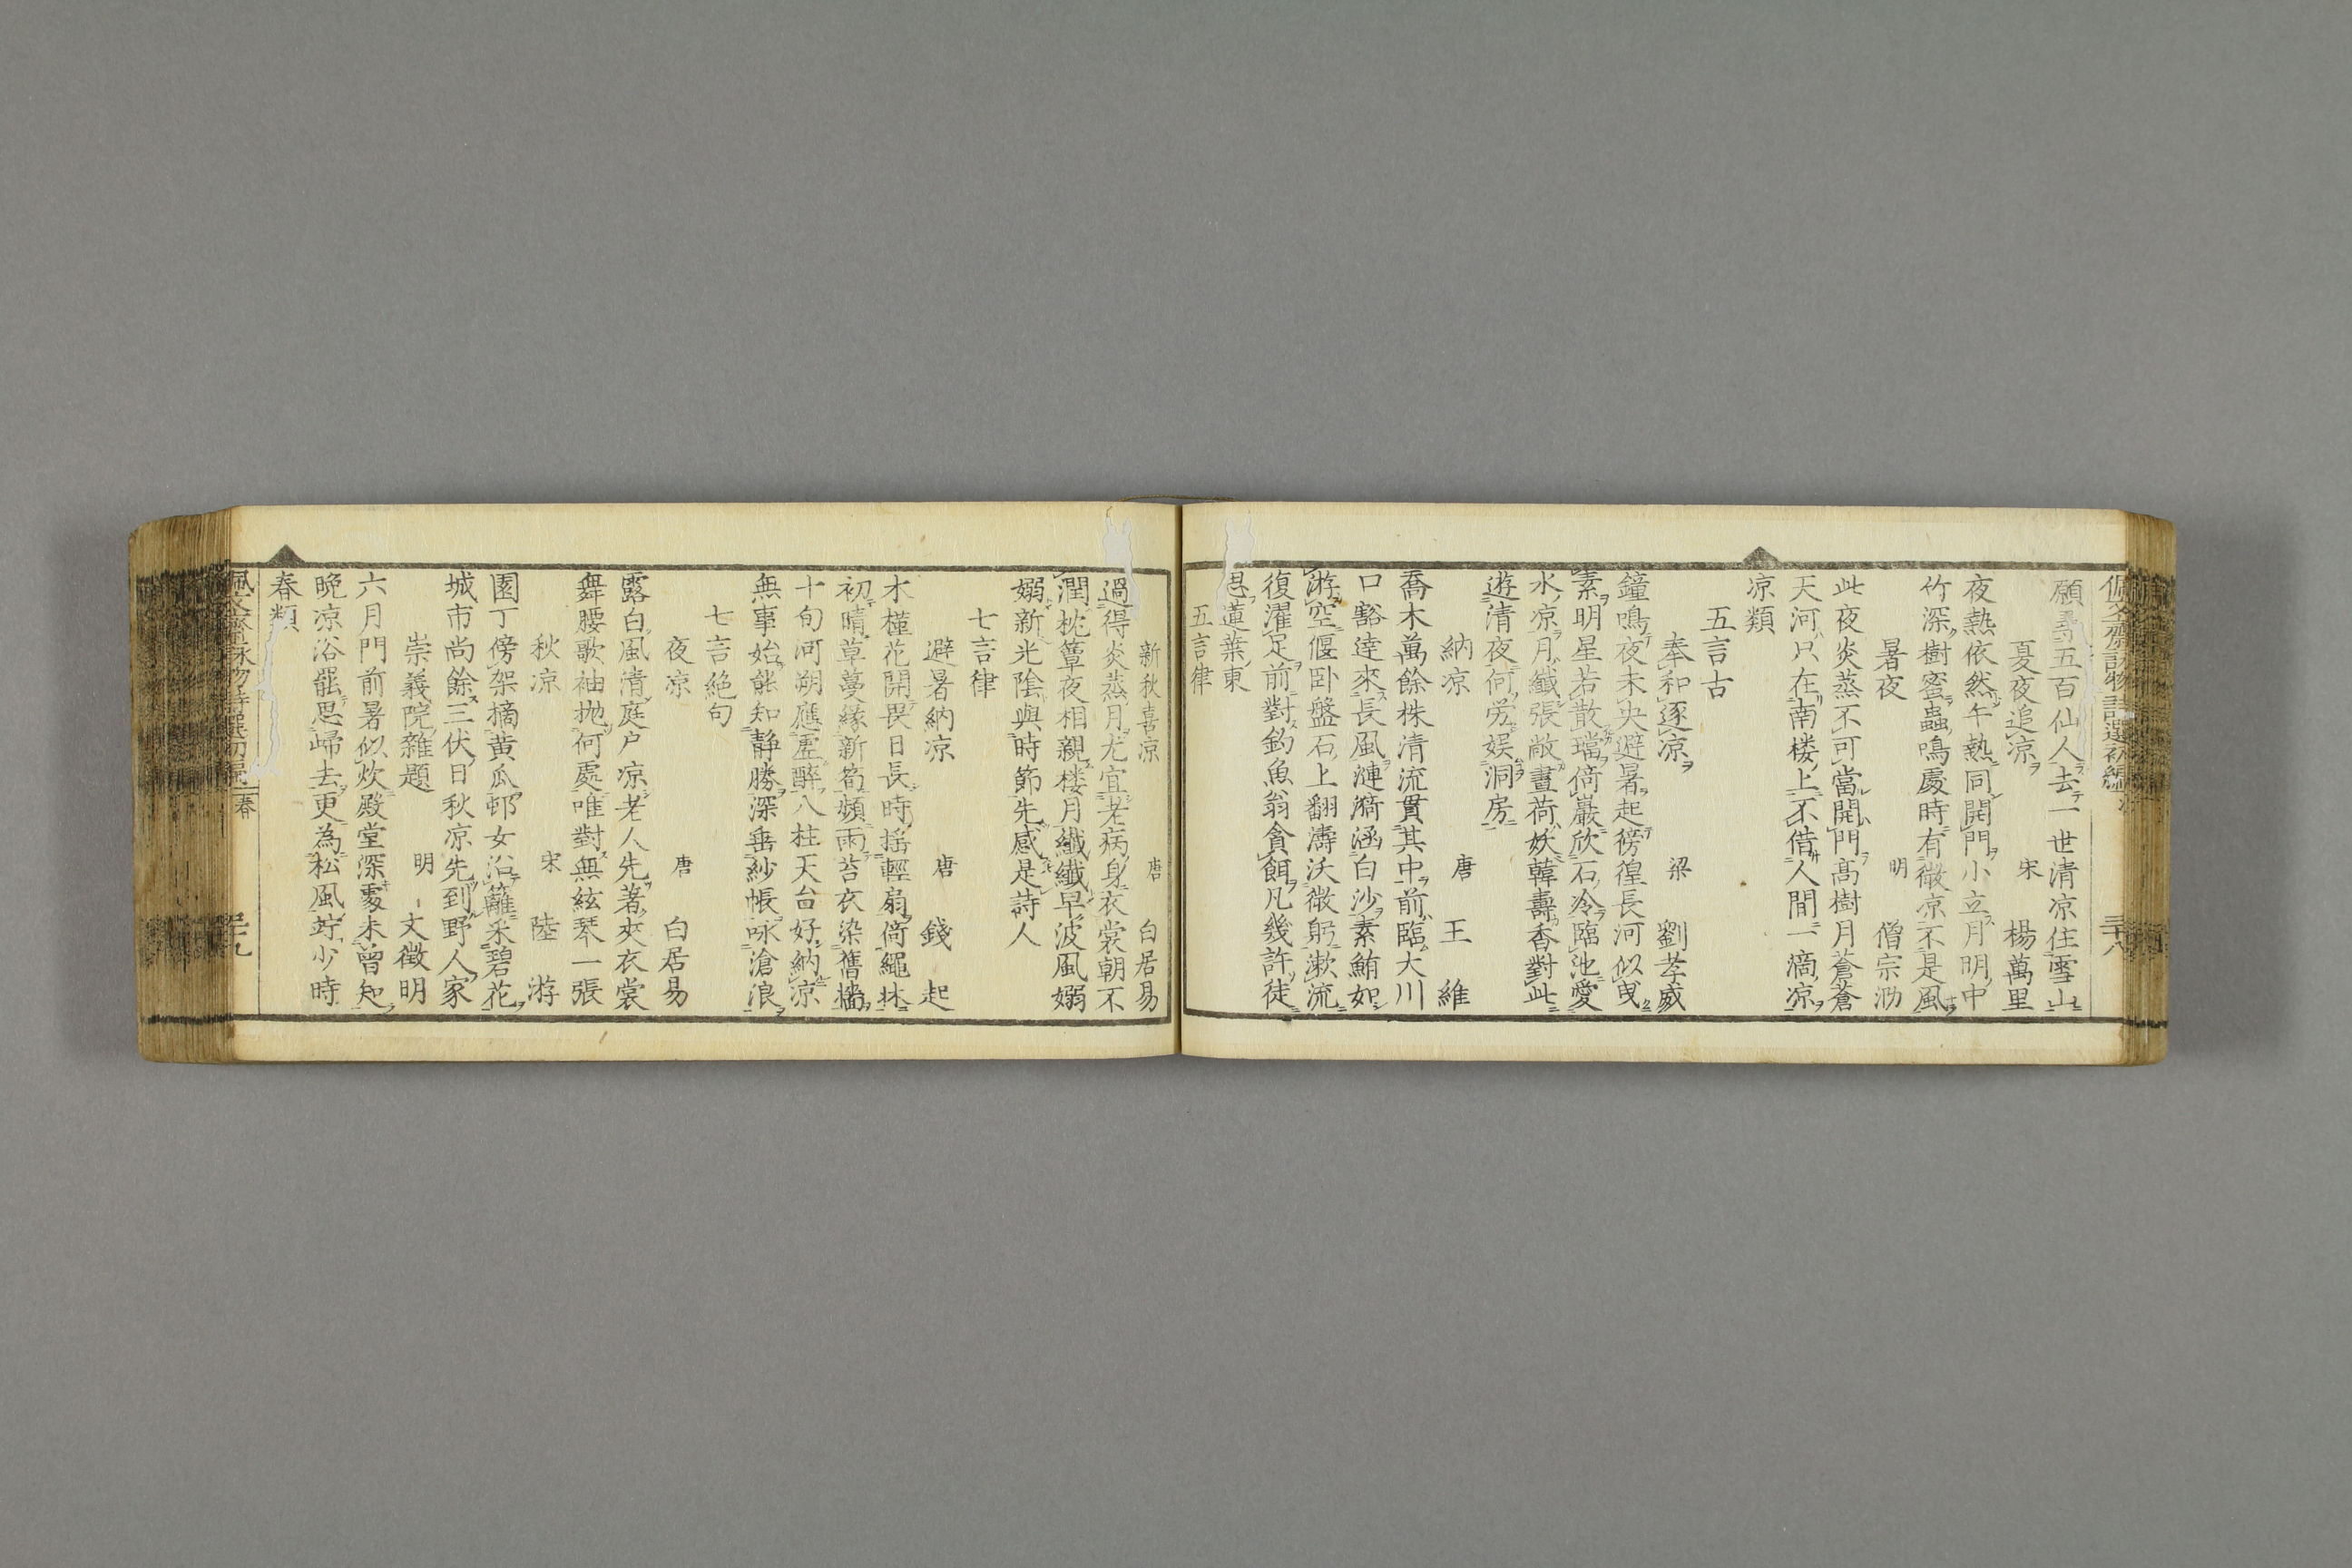 佩文齋詠物詩選初編
三十八
願尋五百仙人去一世清凉住雪山
夏夜追凉 宋 楊萬里
夜熱依然午熱同開門小立月明中
竹深樹蜜蟲鳴處時有微凉不是風
暑夜 明 僧宗泐
此夜炎蒸不可當開門髙樹月蒼蒼
天河只在南楼上不借人間一滴凉
凉類
五言古
奉和逐凉 梁 劉孝威
鐘鳴夜未央避暑起徬徨長河似曳
素明星若散璫倚巖欣石冷臨池愛
水凉月纎張敞畫荷妖韓壽香對此
遊清夜何労娱洞房
納凉 唐 王維
喬木萬餘株清流貫其中前臨大川
口豁達來長風漣漪涵白沙素鮪如
游空偃卧盤石上翻濤沃微躬漱流
復濯足前對釣魚翁貪餌凡幾許徒
思蓮葉東
五言律
新秋喜凉 唐 白居易
過得炎蒸月尤宜老病身衣裳朝不
潤枕簟夜相親楼月纖纖早波風嫋
嫋新光陰與時節先感是詩人
七言律
避暑納凉 唐 錢起
木槿花開畏日長時揺輕扇倚繩牀
初晴草蔓縁新筍頻雨苔衣染舊墻
十旬河朔應虚醉八柱天台好納凉
無事始能知静勝深垂紗帳咏滄浪
七言絶句
夜凉 唐 白居易
露白風清庭户凉老人先著夾衣裳
舞腰歌袖抛何處唯對無絃琴一張
秋凉 宋 陸游
園丁傍架摘黄瓜邨女沿籬采碧花
城市尚餘三伏日秋凉先到野人家
崇義院雜題 明 文徴明
六月門前暑似炊殿堂深處未曾知
晩凉浴罷思歸去更為松風竚少時
春類
佩文齋詠物詩選初編 春
三十九